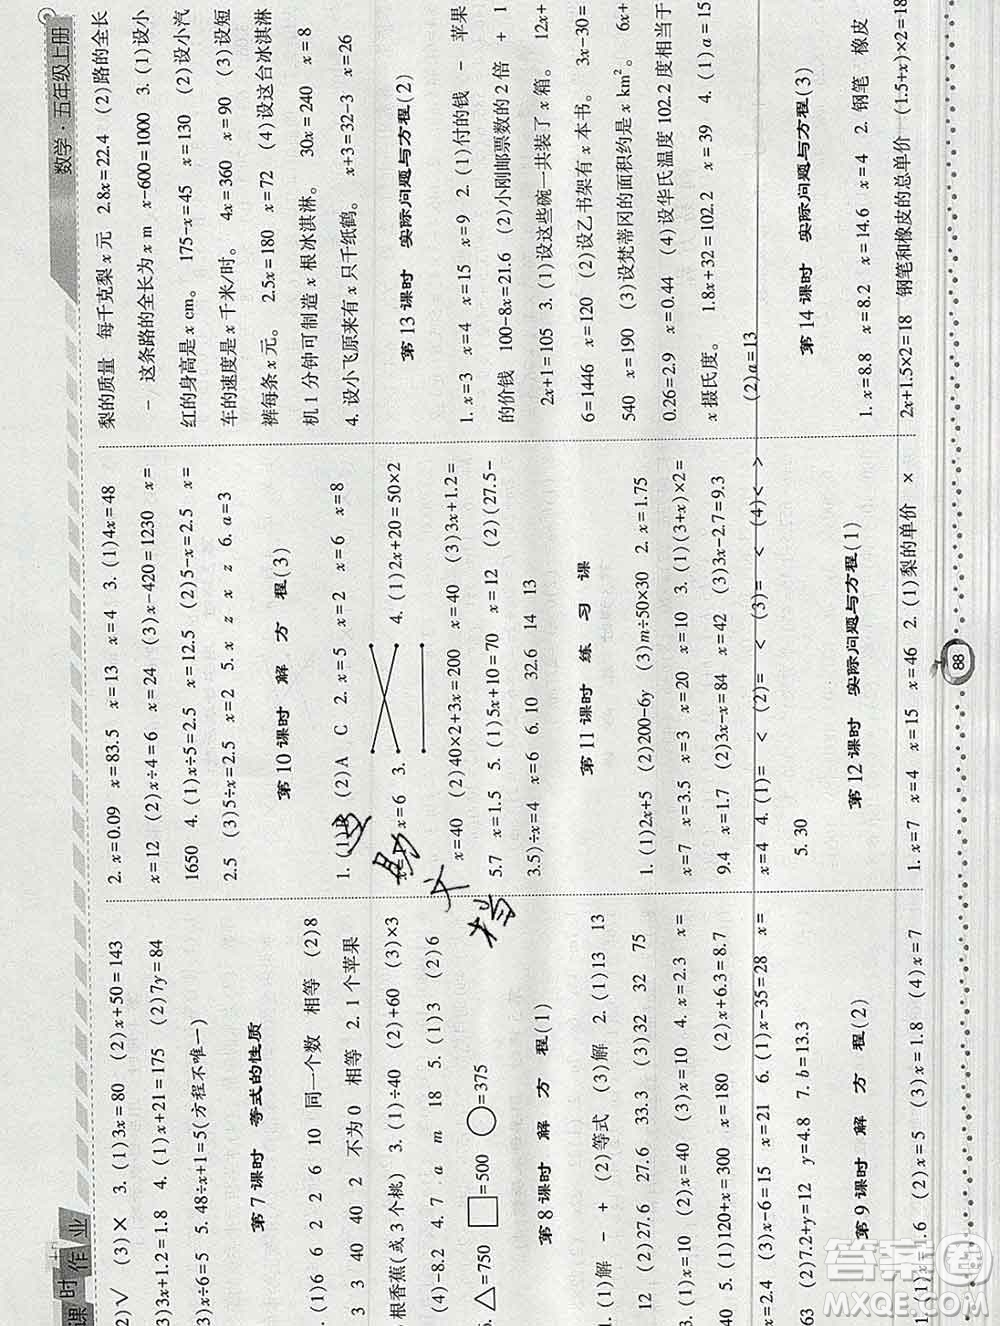 数学·五年级上册
课时作业
2)√ (3)× 3. (1)3x=80 (2)x+50=143
3)3x+1.2=1.8 4. (1)x+21=175 (2)7y=84
3)x÷6=5 5. 48÷x+1=5(方程不唯一)
第 7 课时 等式的性质
. (1)6 6 2 2 6 10 同一个数 相等 (2)8
3 3 40 40 2 不为 0 相等 2. 1 个苹果
根香蕉(或 3 个桃) 3. (1)÷40 (2)+60 (3)×3
(4)-8.2 4. 7 a m 18 5. (1)3 (2)6
. △=750 □=500 ○=375
第 8 课时 解 方 程(1)
. (1)解 - + (2)等式 (3)解 2. (1)13 13
12 (2)27.6 27.6 33.3 (3)32 32 75
3. (1)x=10 (2)x=40 (3)x=10 4. x=2.3 x=
40 5. (1)120+x=300 x=180 (2)x+6.3=8.7
x=2.4 (3)x-6=15 x=21 6. (1)x-35=28 x=
63 (2)7.2+y=12 y=4.8 7. b=13.3
第 9 课时 解 方 程(2)
1. (1)x=1.6 (2)x=5 (3)x=1.8 (4)x=7
2. x=0.09 x=83.5 x=13 x=4 3. (1)4x=48
x=12 (2)x÷4=6 x=24 (3)x-420=1230 x=
1650 4. (1)x÷5=2.5 x=12.5 (2)5-x=2.5 x=
2.5 (3)5÷x=2.5 x=2 5. x z x z 6. a=3
第 10 课时 解 方 程(3)
1. (1)B (2)A C 2. x=5 x=2 x=6 x=8
x=6 3. 4. (1)2x+20=50×2
x=40 (2)40×2+3x=200 x=40 (3)3x+1.2=
5.7 x=1.5 5. (1)5x+10=70 x=12 (2)(27.5-
3.5)÷x=4 x=6 6. 10 32.6 14 13
第 11 课时 练 习 课
1. (1)2x+5 (2)200-6y (3)m÷50×30 2. x=1.75
x=7 x=3.5 x=3 x=20 x=10 3. (1)(3+x)×2=
9.4 x=1.7 (2)3x-x=84 x=42 (3)3x-2.7=9.3
x=4 4. (1)= < (2)= < (3)= < (4)< >
5. 30
第 12 课时 实际问题与方程(1)
1. x=7 x=4 x=15 x=46 2. (1)梨的单价 ×
梨的质量 每千克梨 x 元 2.8x=22.4 (2)路的全长
- 这条路的全长为 x m x-600=1000 3. (1)设小
红的身高是 x cm。 175-x=45 x=130 (2)设小汽
车的速度是 x 千米/时。 4x=360 x=90 (3)设短
裤每条 x 元。 2.5x=180 x=72 (4)设这台冰淇淋
机 1 分钟可制造 x 根冰淇淋。 30x=240 x=8
4. 设小飞原来有 x 只千纸鹤。 x+3=32-3 x=26
第 13 课时 实际问题与方程(2)
1. x=3 x=4 x=15 x=9 2. (1)付的钱 - 苹果
的价钱 100-8x=21.6 (2)小刚邮票数的 2 倍 + 1
2x+1=105 3. (1)设这些碗一共装了 x 箱。 12x+
6=1446 x=120 (2)设乙书架有 x 本书。 3x-30=
540 x=190 (3)设梵蒂冈的面积约是 x km²。 6x+
0.26=2.9 x=0.44 (4)设华氏温度 102.2 度相当于
x 摄氏度。 1.8x+32=102.2 x=39 4. (1)a=15
(2)a=13
第 14 课时 实际问题与方程(3)
1. x=8.8 x=8.2 x=14.6 x=4 2. 钢笔 橡皮
2x+1.5×2=18 钢笔和橡皮的总单价 (1.5+x)×2=18
88
答案圈
MXQE.COM